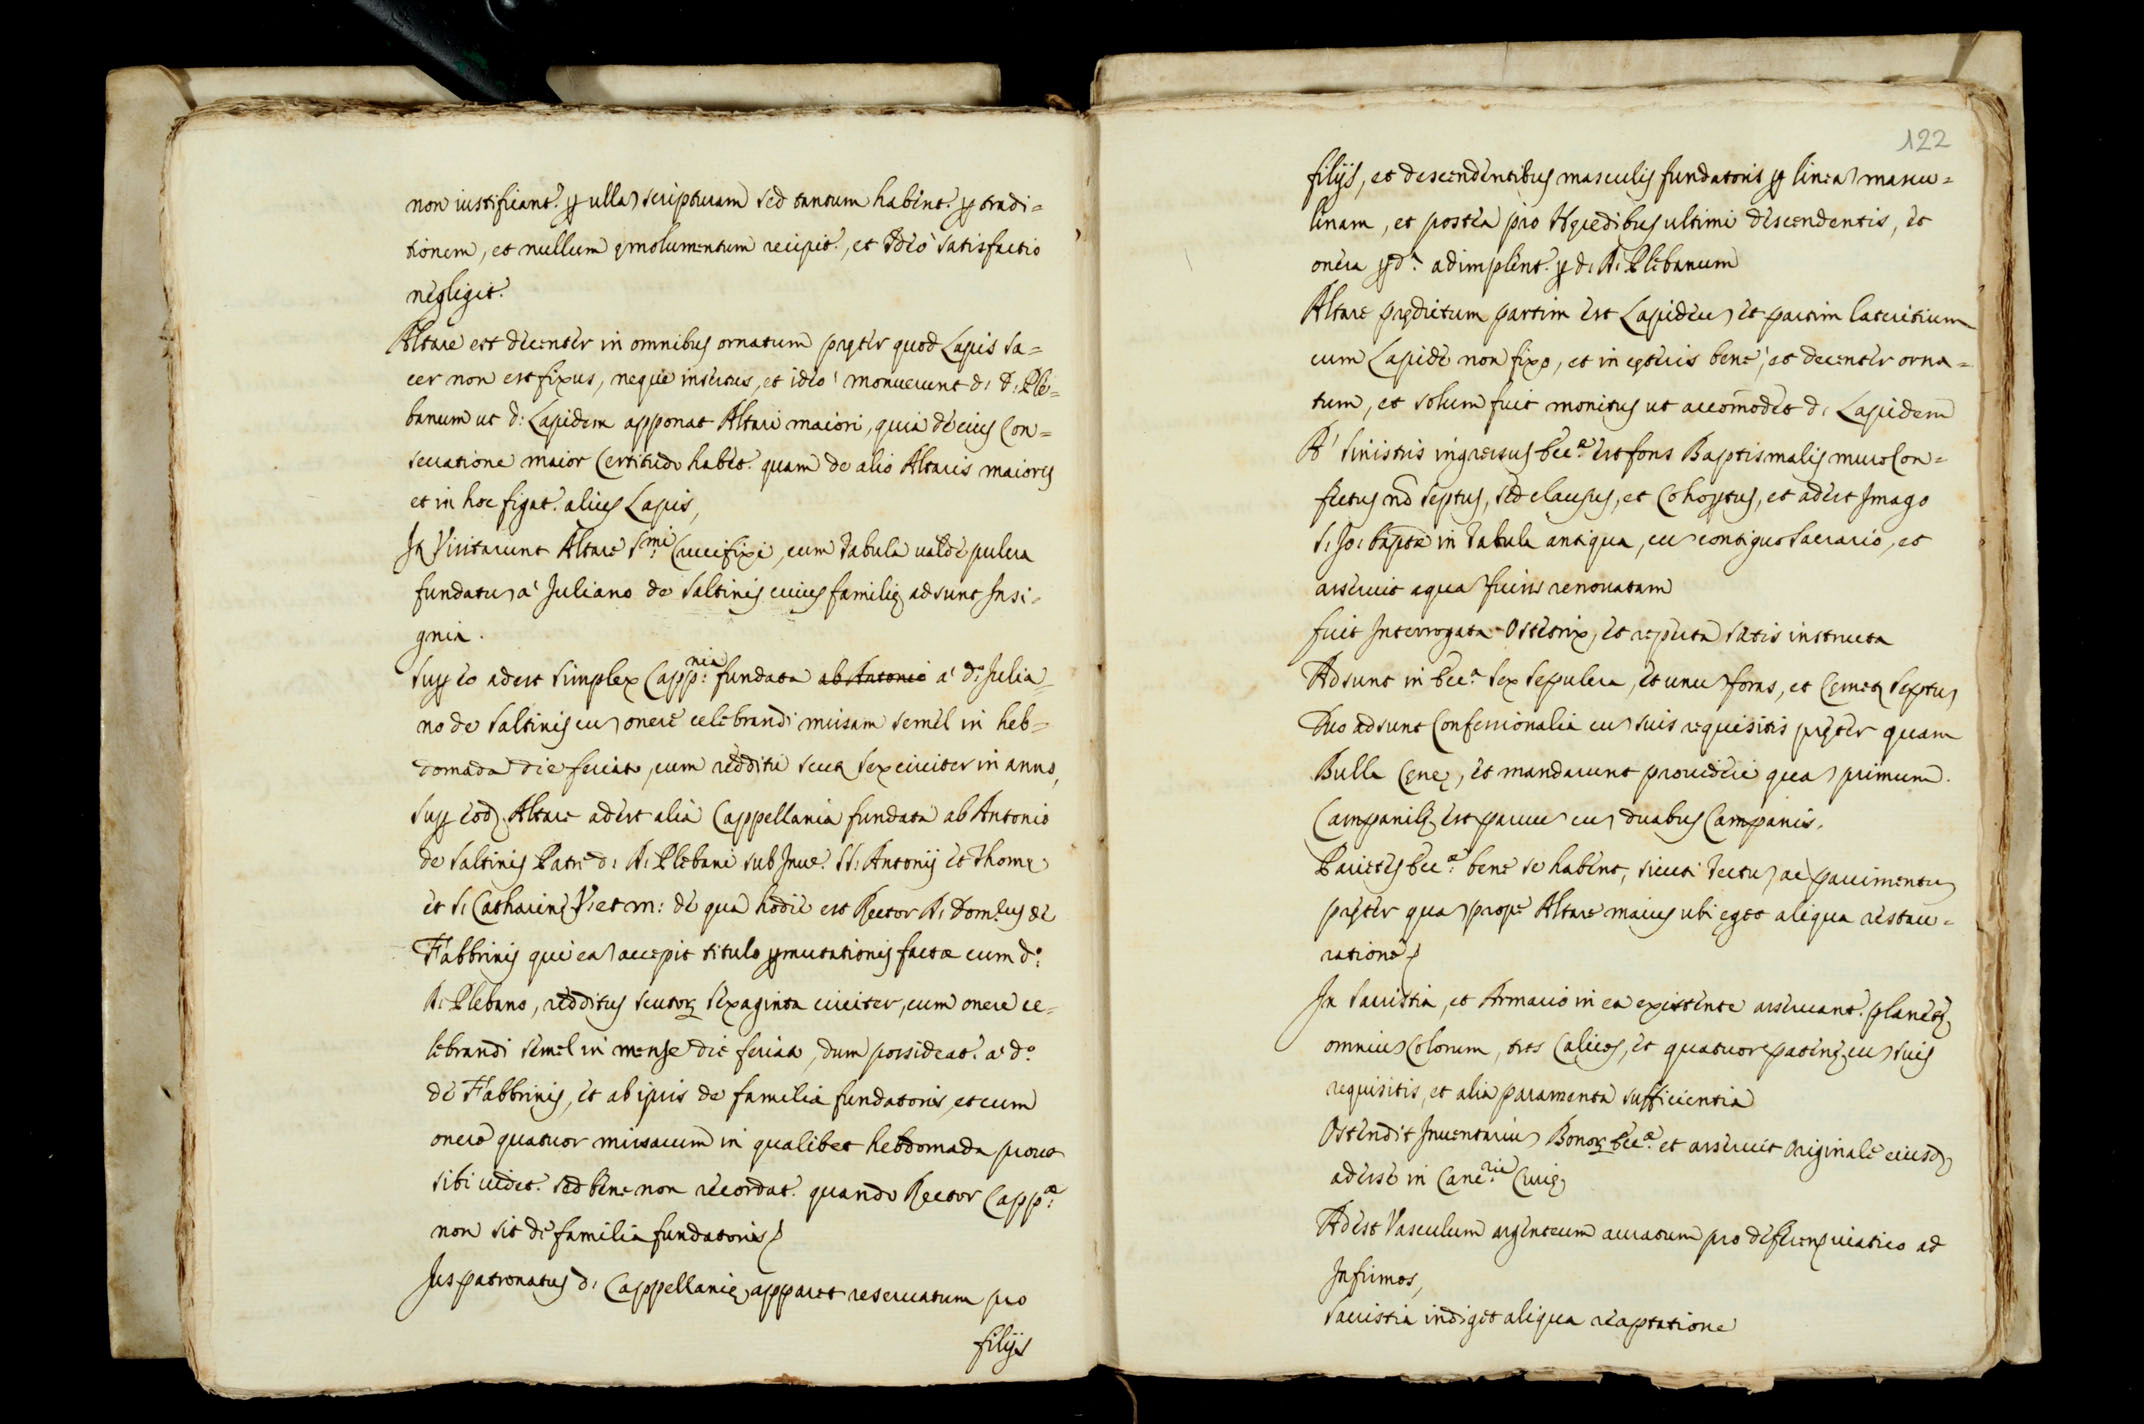 non iustificant.r ꝑ ulla scripturam sed tantum habent.r ꝑ tradi=
tionem, et nullum emolumentum recipit.r, et ideo satisfactio
negligit.r
Altare est decenter in omnibus ornatum pręter quod Lapis Sa=
cer non est fixus, neque insertus, et ideo monuerunt d: R: Ple=
banum ut d: Lapidem apponat Altari maiori, quia de eius Con=
seruatione maior Certitudo habet.r quam de alio Altaris maioris
et in hoc figat.r alius Lapis,
It Visitarunt Altare S.mi Crucifixi, cum tabula ualde pulcra
fundatu à Juliano de Saltinis cuius familię adsunt Insi=
gnia.
Suꝑ eo adest simplex Capp:nia fundata ab Antonio à d.o Julia=
no de Saltinis cu onere celebrandi missam semel in heb=
domada die feriata, cum redditu scut. sex circiter in anno,
Suꝑ eod Altare adest alia Cappellania fundata ab Antonio
de Saltinis Patre d: R: Plebani sub Inue. SS: Antonij et Thomę
et S: Catharinę V: et m: de qua hodie est Rector R: Dom.cus de
Fabbrinis qui ea accepit titulo ꝑmutationis factæ cum d.o
R: Plebano, redditus scutor. sexaginta circiter, cum onere ce=
lebrandi semel in mense die feriata, dum possideat.r a d.o
de Fabbrinis, et ab ipsis de familia fundatoris, et cum
onere quatuor missarum in qualibet hebdomada prout
sibi uidet.r sed bene non recordat.r quando Rector Capp.æ
non sit de familia fundatoris
Jus patronatus d: Cappellanię apparet reseruatum pro
filijs
122
filijs, et descendentibus masculis fundatoris ꝑ linea mascu=
linam, et postea pro Hęredibus ultimi descendentis, et
onera ꝑd.a adimplent.r ꝑ d: R: Plebanum
Altare prędictum partim est Lapideu et partim lateritium
cum Lapide non fixo, et in cęteris bene, et decenter orna=
tum, et solum fuit monitus ut accomodet d: Lapidem
A' sinistris ingressus Ecc.æ est fons Baptismalis muro Con=
fectus nō septus, sed clausus, et Cohoptus, et adest Imago
S: Jo: Baptæ in tabula antiqua, cu contiguo Sacrario, et
asseruit aqua fuiss renouatam
fuit Interrogata Ostetrix, et reperta satis instructa
Adsunt in Ecc.a sex sepulcra, et unu foras, et Cemet. septu
Duo adsunt Confessionalia cu suis requisitis pręter quam
Bulla Cenę, et mandarunt prouideri qua primum.
Campanilę est paruu cu duabus Campanis,
Parietes Ecc.æ bene se habent, sicuti tectu ac pauimentu
pręter qua prope Altare maius ubi eget aliqua restau=
ratione
In Sacristia, et Armario in ea existente asseruant.r planetę
omniu Colorum, tres Calices, et quatuor patenę cu suis
requisitis, et alia paramenta sufficientia
Ostendit Inuentariu Bonor. Ecc.æ et asseruit originale eiusd
adesse in Canc.ria Curię
Adest Vasculum argenteum auratum pro deferen. uiatico ad
Infirmos,
Sacristia indiget aliqua reaptatione